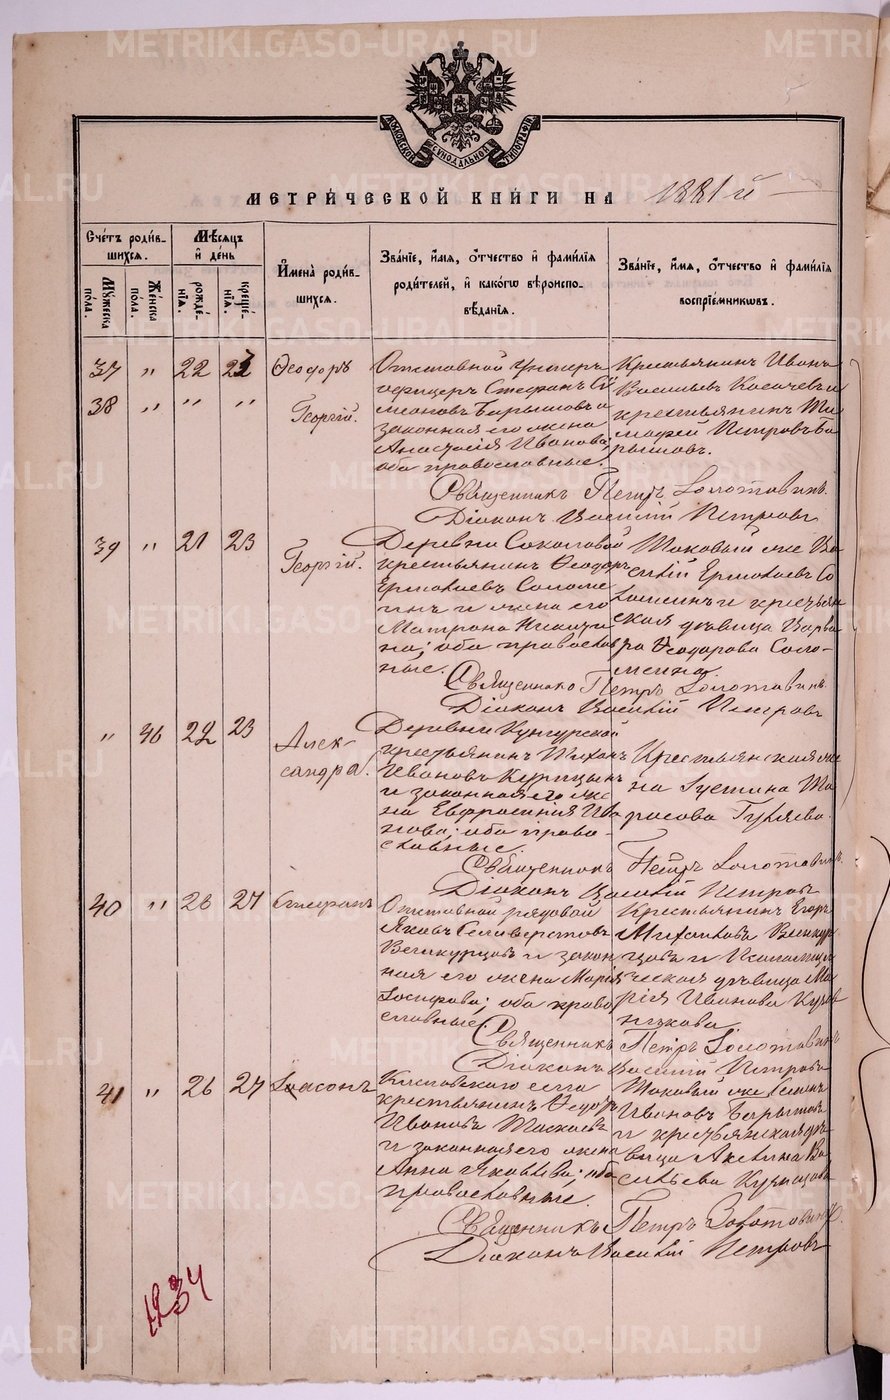 METRIKI.GASO-URAL.RU
МОСКОВСКОЙ СѴНОДАЛЬНОЙ ТИПОГРАФІИ
МЕТРИ́ЧЕСКОЙ КНИ́ГИ НА 1881 й
Сче́тъ роди́вшихся.
Му́жеска по́ла.
Же́нска по́ла.
Мѣ́сяцъ и҆ де́нь
рожде́нія.
креще́нія.
И҆мена̀ роди́вшихся.
Зва́ніе, и҆́мя, ѻ҆́тчество и҆ фами́лія родителей, и҆ како́гѡ вѣроисповѣ́данія.
Зва́ніе, и҆́мя, ѻ҆́тчество и҆ фами́лія воспріе́мникѡвъ.
37 " 22 23 Ѳеодоръ
38 " " " Георгій.
Отставной Унтеръ
офицеръ Стефанъ Си
меоновъ Барышовъ и
законная его жена
Анастасія Иванова;
оба православные.
Крестьянинъ Иванъ
Васильевъ Косачевъ и
крестьянинъ Ти
мофей Петровъ Ба
рышовъ.
Священникъ Петръ Золотавинъ.
Діаконъ Василій Петровъ
39 " 21 23 Георгій.
Деревни Соколовой
крестьянинъ Ѳеодоръ
Ермолаевъ Соломе
инъ и жена его
Матрона Никити
на; оба православ
ные.
Таковый же Ва
силій Ермолаевъ Со
ломеинъ и крестьян
ская дѣвица Варва
ра Ѳеодорова Соло-
меина.
Священникъ Петръ Золотавинъ.
Діаконъ Василій Петровъ
" 36 22 23 Алек-
сандра.
Деревни Кунгурской
крестьянинъ Тихонъ
Ивановъ Курицынъ
и законная его же
на Евфросинія Ива
нова; оба право-
славные.
Крестьянская же
на Устина Та
расова Гуляева.
Священникъ Петръ Золотавинъ.
Діаконъ Василій Петровъ
40 " 26 27 Стефанъ
Отставной рядовой
Яковъ Селиверстовъ
Великурцовъ и закон
ная его жена Марія
Іосифова; оба право
славные.
Крестьянинъ Егоръ
Михаиловъ
и
ческая дѣвица Ма
рія Иванова
Священникъ Петръ Золотавинъ
Діаконъ Василій Петровъ
41 " 26 27 Іасонъ
села
крестьянинъ Ѳедоръ
Ивановъ
и законная его жена
Анна Яковлева; оба
православные.
Таковый же Семенъ
Ивановъ Барышовъ
и крестьянская дѣ
вица Акилина Ва
сильева
Священникъ Петръ Золотавинъ.
Діаконъ Василій Петровъ